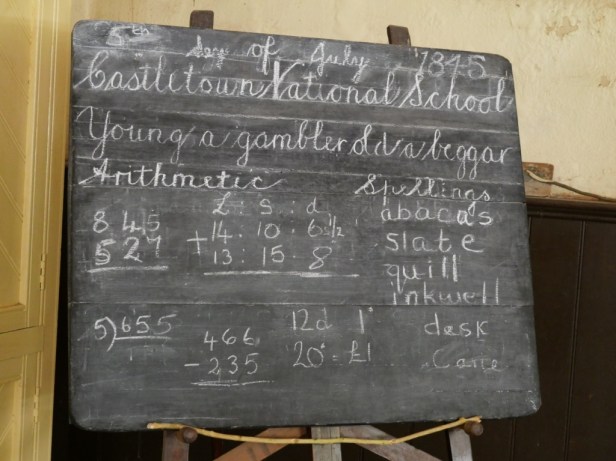 5th
day of July 1845
Castletown National School
Young a gambler old a beggar
Arithmetic
Spellings
£ : s : d
845
14 : 10 : 6 1/2
abacas
527
+ 13 : 15 : 8
slate
quill
inkwell
5)655
466
12d 1s
desk
- 235
20s = £1
Cane